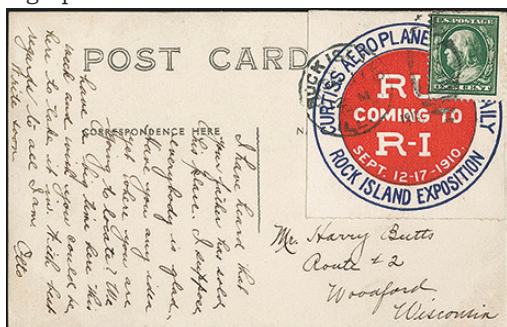 POST CARD
CORRESPONDENCE HERE
I have heard that
your father has sold
his place. I suppose
everybody is glad.
Have you any idea
yet where you are
going to locate? We
have a big time here this
week and wish you could be
here to take it in. With best
regards to all I am
Write soon
CURTISS AEROPLANE
DAILY
RU
COMING TO
R-I
SEPT. 12-17-1910.
ROCK ISLAND EXPOSITION
U.S. POSTAGE
CENT
ROCK IS
Mr. Harry Butts
Route #2
Woodford
Wisconsin